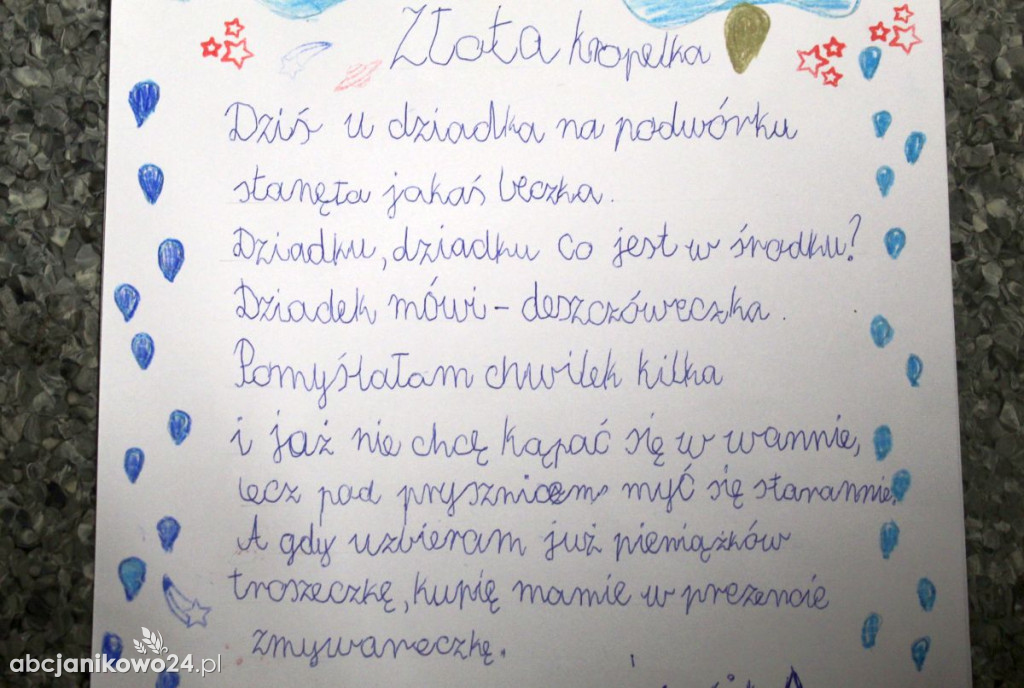 Złota kropelka
Dziś u dziadka na podwórku
stanęła jakaś beczka.
Dziadku, dziadku co jest w środku?
Dziadek mówi - deszczóweczka.
Pomyślałam chwilek kilka
i jaż nie chcę kąpać się w wannie,
lecz pod prysznicem myć się starannie.
A gdy uzbieram już pieniążków
troszeczkę, kupię mamie w prezencie
zmywareczkę.
abcjanikowo24.pl